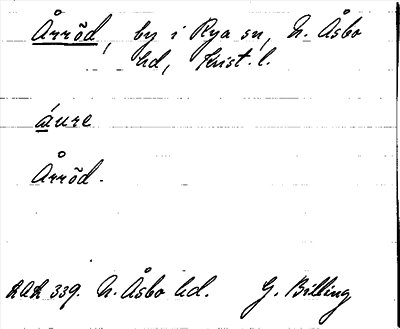 Årröd, by i Rya sn, N. Åsbo
hd, Krist. l.
áure
Årröd.
RAR 339. N. Åsbo hd. G. Billing